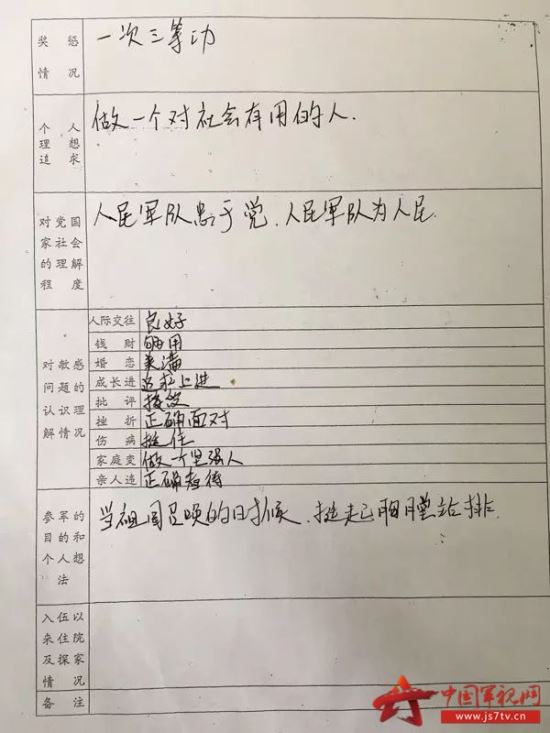 奖惩 一次三等功
情况
个人 做一个对社会有用的人.
理想
追求
对党国 人民军队忠于党、人民军队为人民.
家社会
的理解
程度
对敏感
问题的
认识理
解情况
人际交往 良好
钱财 够用
婚恋 美满
成长进 追求上进
批评 接受
挫折 正确面对
伤病 挺住
家庭变 做一个坚强人
亲人违 正确看待
参军的 当祖国召唤的时候、挺起胸膛站排
目的和
个人想
法
入伍以
来住院
及探家
情况
备注
中国军视网
www.js7tv.cn